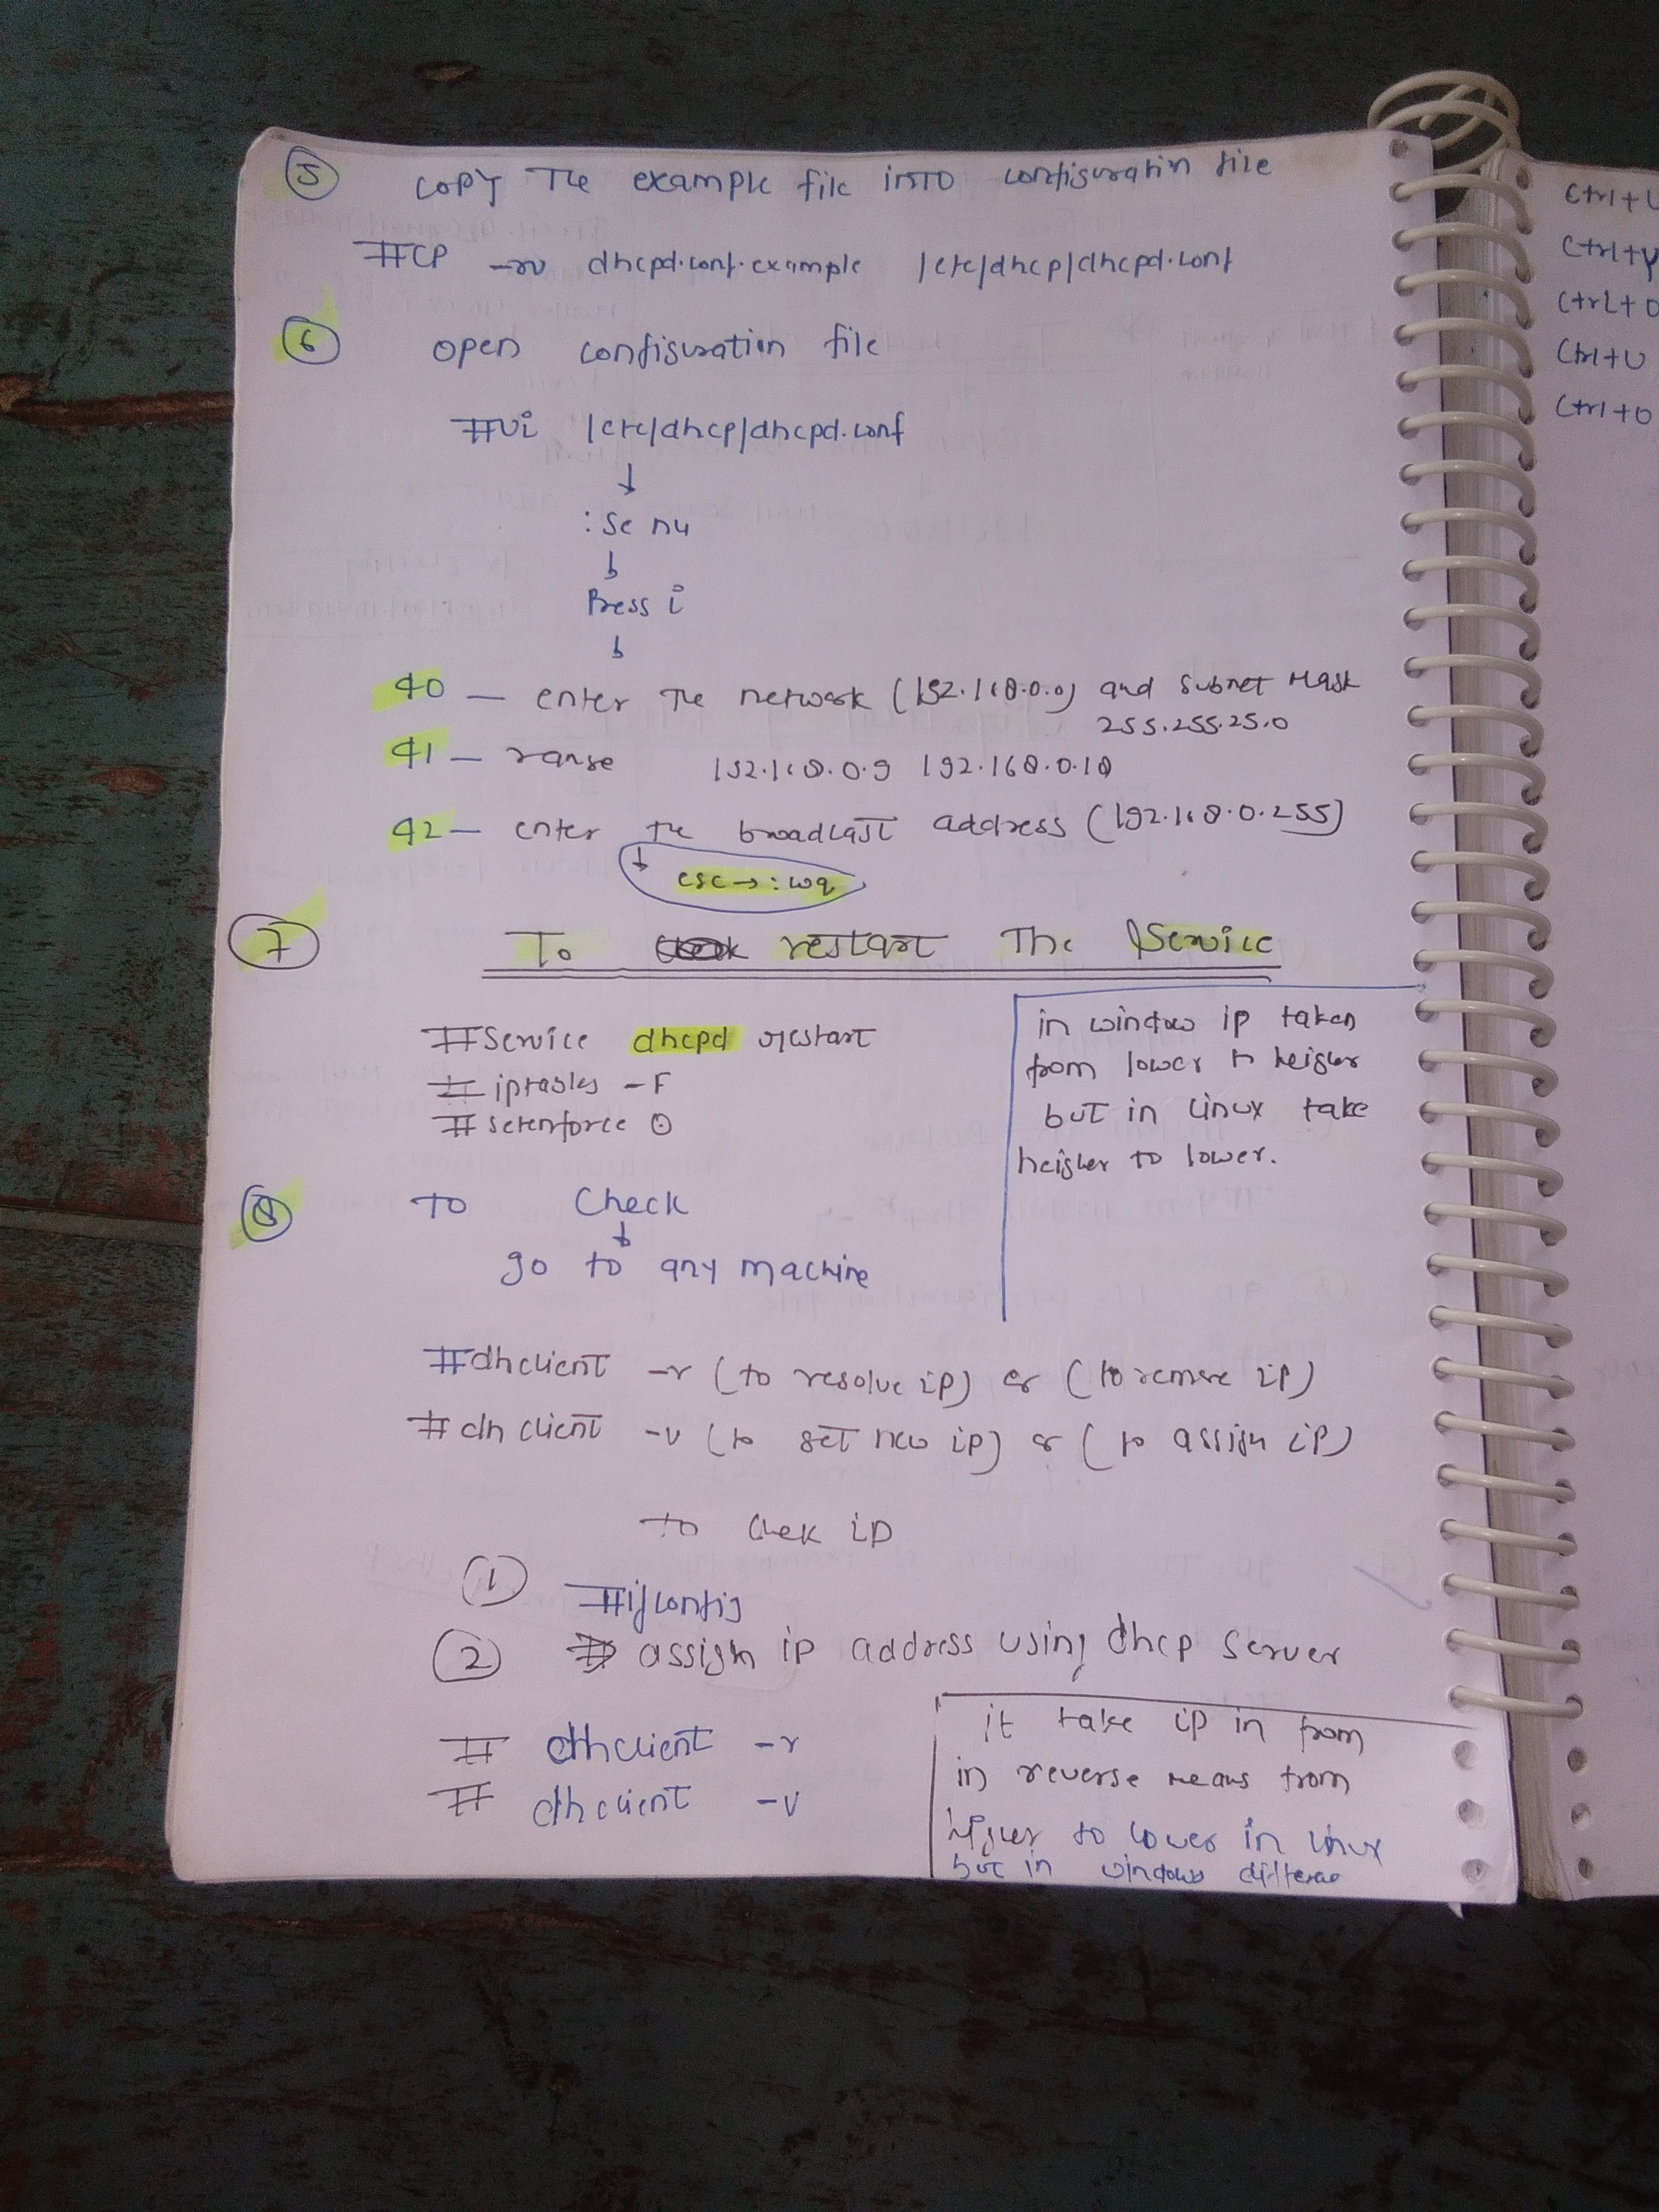 5 copy The example file into configuratin file
#cp -rv dhcpd.conf.example /etc/dhcp/dhcpd.conf
6 open configuration file
#vi /etc/dhcp/dhcpd.conf
↓
:se nu
↓
Press i
↓
40 — enter The network (192.168.0.0) and Subnet Mask
255.255.25.0
41 — range 192.168.0.9 192.168.0.18
42 — enter the broadcast address (192.168.0.255)
↓
esc→ :wq
7 To restart The Service
#Service dhcpd restart
# iptables -F
# setenforce 0
in window ip taken
from lower to heigher
but in linux take
heigher to lower.
8 TO Check
↓
go to any machine
#dhclient -r (to resolve ip) or (to remove ip)
#dhclient -v (to set new ip) or (to assign ip)
to chek ip
1 #ifconfig
2 assign ip address using dhcp server
# dhclient -r
# dhclient -v
it take ip in from
in reverse means from
higher to lower in linux
but in windows
Ctrl+
Ctrl+y
Ctrl+
Ctrl+U
Ctrl+o